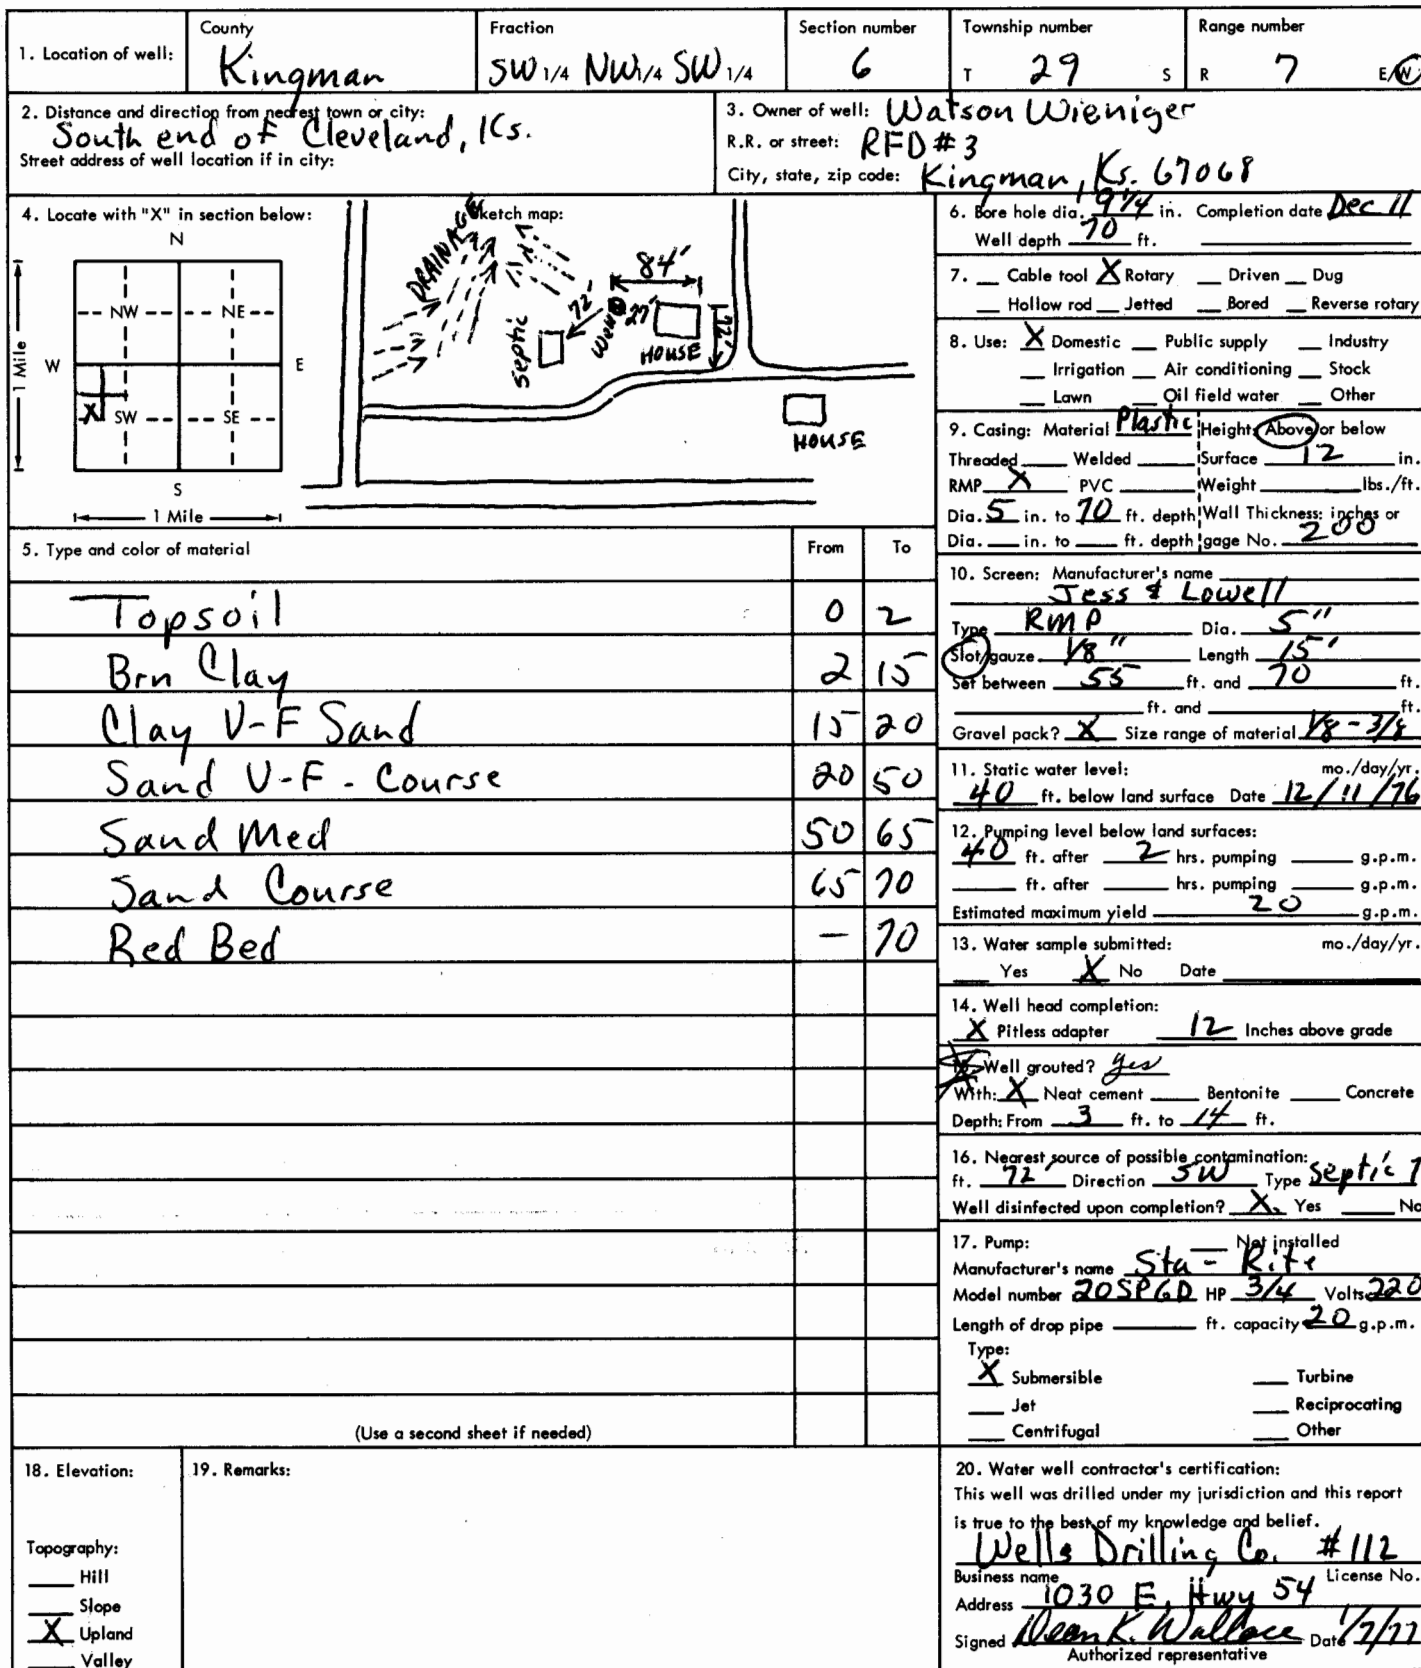 1. Location of well: County Kingman Fraction SW 1/4 NW 1/4 SW 1/4 Section number 6 Township number T 29 S Range number R 7 E/W
2. Distance and direction from nearest town or city:
South end of Cleveland, Ks.
Street address of well location if in city:
3. Owner of well: Watson Wieniger
R.R. or street: RFD #3
City, state, zip code: Kingman, Ks. 67068
4. Locate with "X" in section below:
N
NW NE
W E
X SW SE
S
1 Mile
1 Mile
Sketch map:
DRAINAGE
84'
72'
Well
27'
septic
HOUSE
HOUSE
5. Type and color of material From To
Topsoil 0 2
Brn Clay 2 15
Clay V-F Sand 15 20
Sand V-F - Course 20 50
Sand Med 50 65
Sand Course 65 70
Red Bed — 70
(Use a second sheet if needed)
6. Bore hole dia. 9 1/4 in. Completion date Dec 11
Well depth 70 ft.
7. Cable tool X Rotary Driven Dug
Hollow rod Jetted Bored Reverse rotary
8. Use: X Domestic Public supply Industry
Irrigation Air conditioning Stock
Lawn Oil field water Other
9. Casing: Material Plastic Height: Above or below
Threaded Welded Surface 12 in.
RMP X PVC Weight lbs./ft.
Dia. 5 in. to 70 ft. depth Wall Thickness: inches or
Dia. in. to ft. depth gage No. 200
10. Screen: Manufacturer's name
Jess & Lowell
Type RMP Dia. 5"
Slot/gauze 1/8" Length 15'
Set between 55 ft. and 70 ft.
ft. and ft.
Gravel pack? X Size range of material 1/8 - 3/8
11. Static water level: mo./day/yr.
40 ft. below land surface Date 12/11/76
12. Pumping level below land surfaces:
40 ft. after 2 hrs. pumping g.p.m.
ft. after hrs. pumping g.p.m.
Estimated maximum yield 20 g.p.m.
13. Water sample submitted: mo./day/yr.
Yes X No Date
14. Well head completion:
X Pitless adapter 12 Inches above grade
15. Well grouted? yes
With: X Neat cement Bentonite Concrete
Depth: From 3 ft. to 14 ft.
16. Nearest source of possible contamination:
ft. 72' Direction SW Type Septic T
Well disinfected upon completion? X Yes No
17. Pump: Not installed
Manufacturer's name Sta-Rite
Model number 20SP6D HP 3/4 Volts 220
Length of drop pipe ft. capacity 20 g.p.m.
Type:
X Submersible Turbine
Jet Reciprocating
Centrifugal Other
18. Elevation:
Topography:
Hill
Slope
X Upland
Valley
19. Remarks:
20. Water well contractor's certification:
This well was drilled under my jurisdiction and this report
is true to the best of my knowledge and belief.
Wells Drilling Co. #112
Business name License No.
Address 1030 E. Hwy 54
Signed Dean K. Wallace Date 1/7/77
Authorized representative